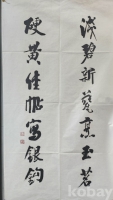 淺碧新甆烹玉茗
硬黃佳帖寫銀鉤
kobay